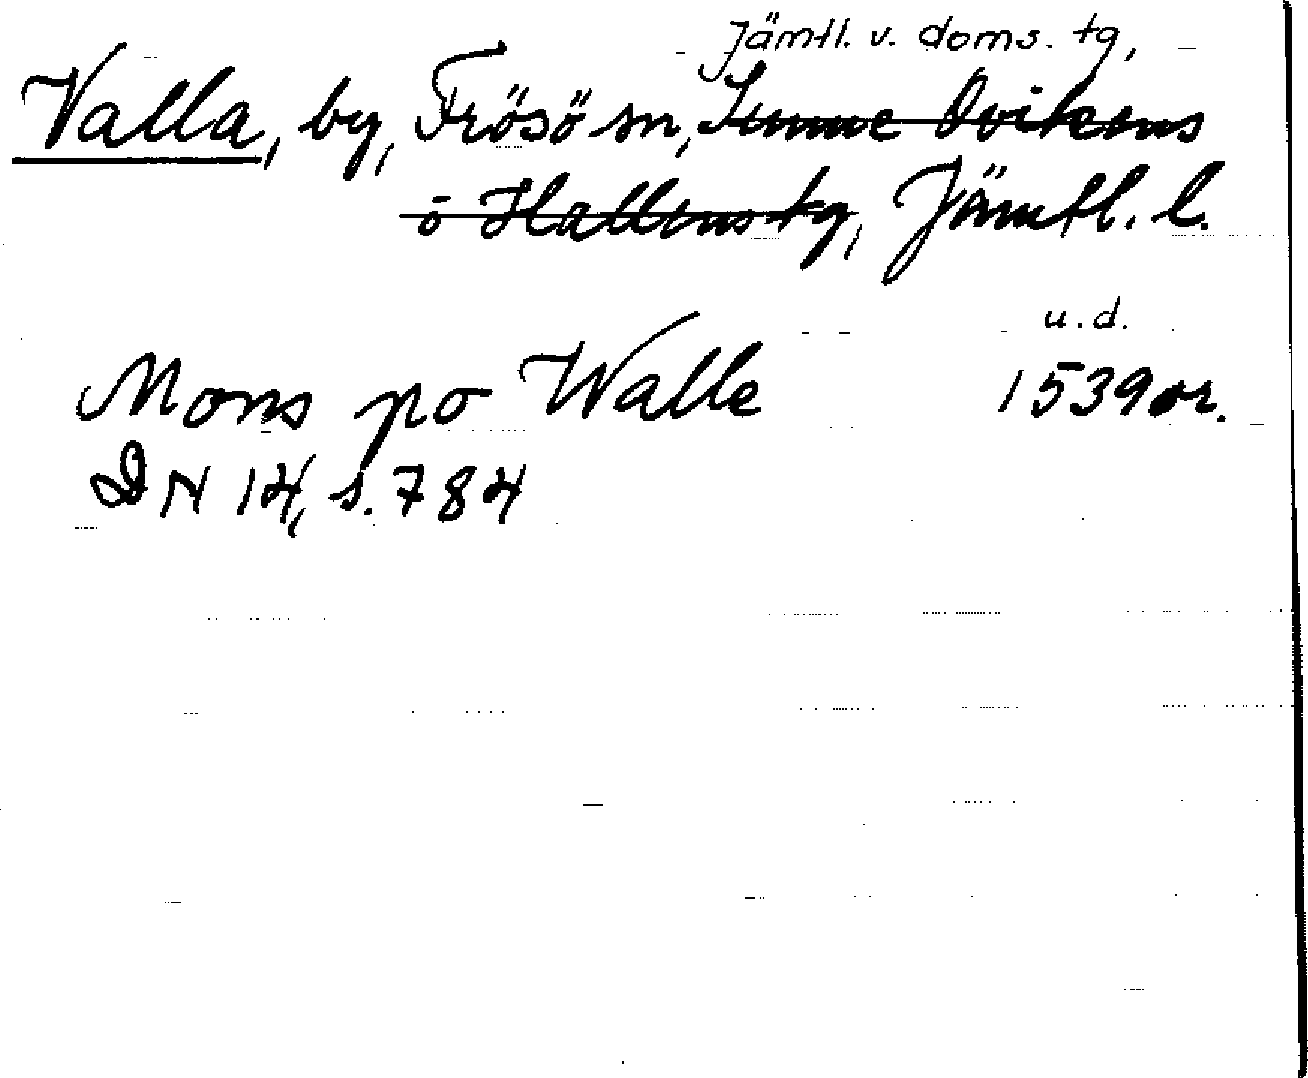 Jämtl. v. doms. tg,
Valla, by, Frösö sn, Sunne Ovikens
o Hallens tg, Jämtl. l.
u.d.
Mons po Walle 1539 or.
DN 14, s. 784